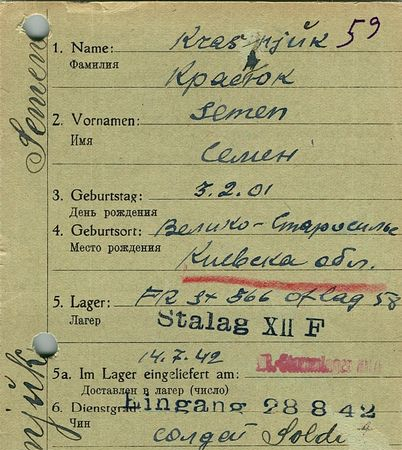 59
1. Name: Krasnjuk
Фамилия
2. Vornamen: Semen
Имя Семен
3. Geburtstag: 3.2.01
День рождения
4. Geburtsort: Велико-Старосилье
Место рождения
Киевска обл.
5. Lager: FR St 366 oflag 58
Лагер
Stalag XII F
14.7.42
5a. Im Lager eingeliefert am:
Доставлен в лагер (число)
6. Dienstgrad: Eingang 28 8 42
Чин
солдат Sold
Semen
njuk